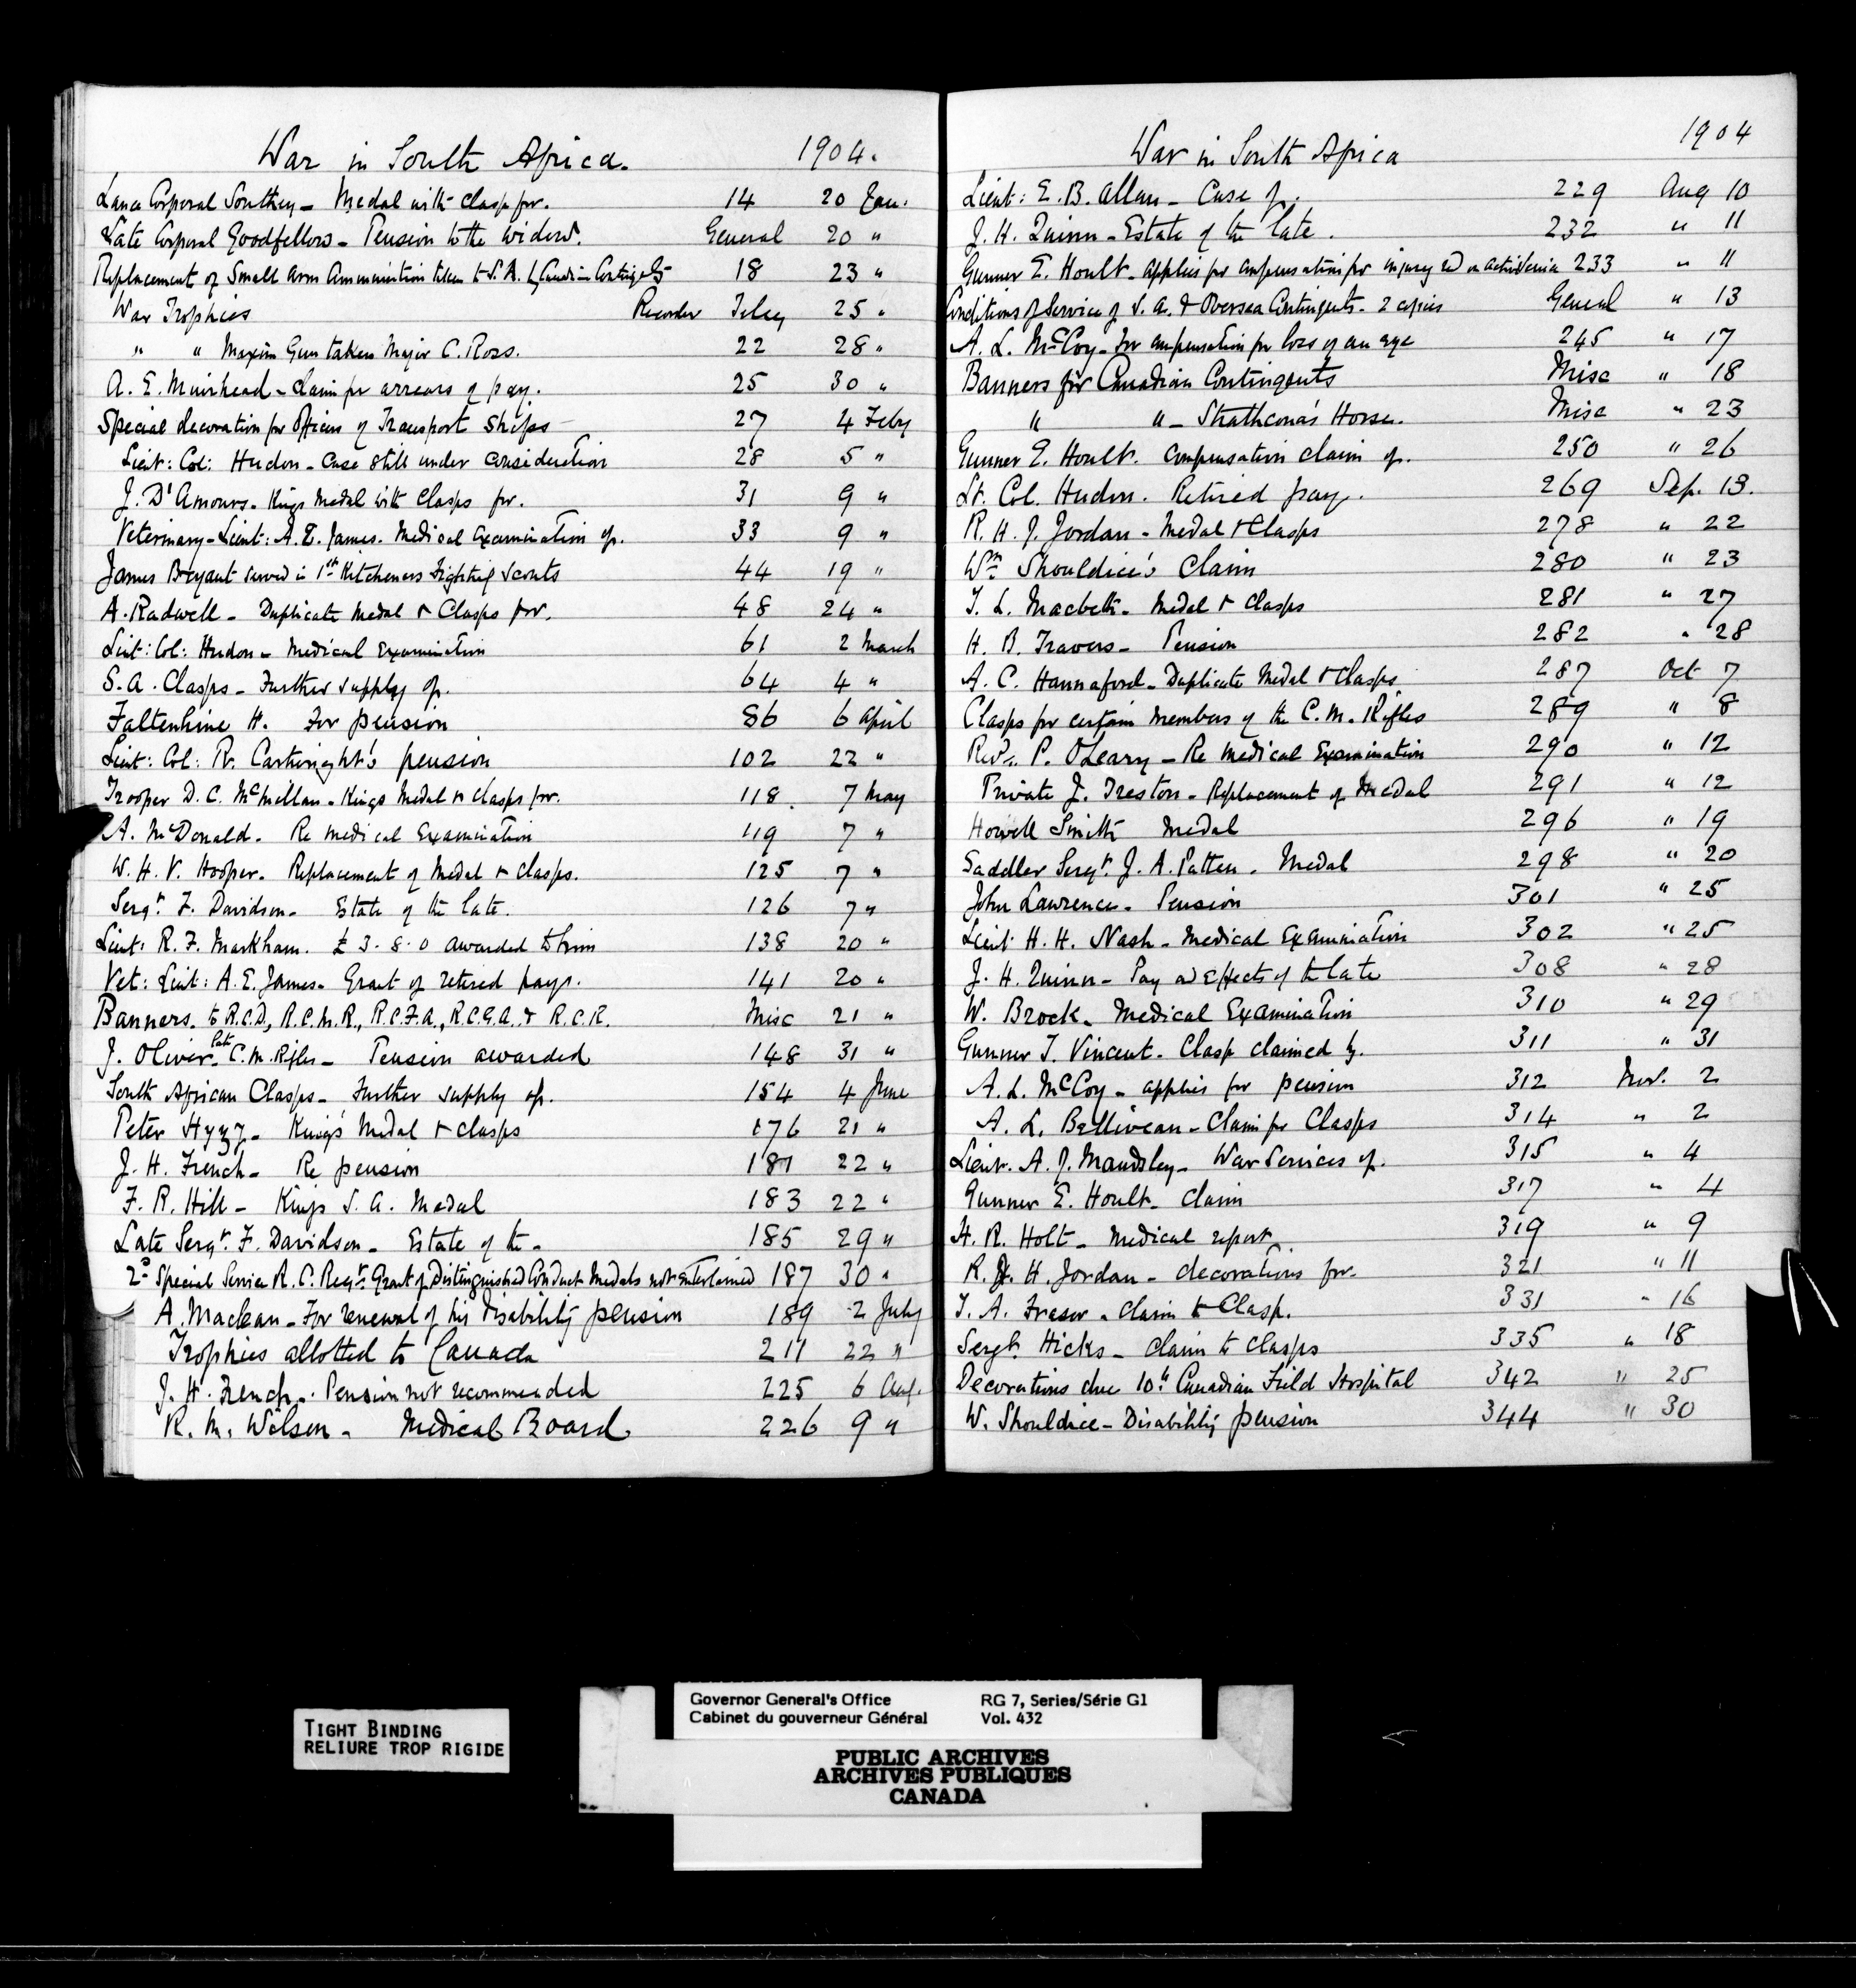 War in South Africa. 1904.
Lance Corporal Southey - Medal with clasp for. 14 20 Jan.
Late Corporal Goodfellow - Pension to the widow. General 20 "
Replacement of Small Arm Ammunition taken to S.A. by Canadian Contingents 18 23 "
War Trophies 25 "
" " Maxim Gun taken Major C. Ross. 22 28 "
A. E. Muirhead - Claim for arrears of pay. 25 30 "
Special decoration for Officers of Transport Ships 27 4 Feby
Lieut: Col: Hudon - Case still under consideration 28 5 "
J. D'Amours - Kings Medal with Clasps for. 31 9 "
Veterinary-Lieut: A. E. James. Medical Examination of. 33 9 "
James Bryant served in 1st Kitcheners Fighting Scouts 44 19 "
A. Radwell - Duplicate Medal & Clasps for. 48 24 "
Lieut: Col: Hudon - Medical Examination 61 2 March
S.A. Clasps - Further supply of. 64 4 "
Faltenhine H. For pension 86 6 April
Lieut: Col: R. Cartwright's pension 102 22 "
Trooper D. C. McMillan - Kings Medal & clasps for. 118. 7 May
A. McDonald. Re Medical Examination 119 7 "
W. H. V. Hooper. Replacement of Medal & clasps. 125 7 "
Sergt. F. Davidson - Estate of the late. 126 7 "
Lieut: R. F. Markham. £3.8.0 awarded to him 138 20 "
Vet: Lieut: A. E. James - Grant of retired pay. 141 20 "
Banners. to R.C.D., R.C.M.R., R.C.F.A., R.C.G.A. & R.C.R. Misc 21 "
J. Oliver late C.M. Rifles - Pension awarded 148 31 "
South African Clasps - Further supply of. 154 4 June
Peter Hyzy - King's Medal & clasps 176 21 "
J. H. French - Re pension 181 22 "
F. R. Hill - Kings S.A. Medal 183 22 "
Late Sergt. F. Davidson - Estate of the - 185 29 "
2d Special Service R. C. Regt. Grant of Distinguished Conduct Medals not entertained 187 30 "
A. Maclean - For renewal of his disability pension 189 2 July
Trophies allotted to Canada 211 22 "
J. H. French. Pension not recommended 225 6 Aug.
R. M. Wilson - Medical Board 226 9 "
War in South Africa 1904
Lieut: E. B. Allan - Case of. 229 Aug 10
J. H. Quinn - Estate of the late. 232 " 11
Gunner E. Hoult - applies for compensation for injury recd on active service 233 " 11
Conditions of Service of S.A. & Oversea Contingents - 2 copies General " 13
A. L. McCoy - For compensation for loss of an eye 245 " 17
Banners for Canadian Contingents Misc " 18
" " - Strathcona's Horse. Misc " 23
Gunner E. Hoult. Compensation claim of. 250 " 26
Lt. Col. Hudon. Retired pay. 269 Sep. 13.
R. H. J. Jordan - Medal & Clasps 278 " 22
Wm Shouldice's Claim 280 " 23
T. L. Macbeth - Medal & Clasps 281 " 27
H. B. Travers - Pension 282 " 28
A. C. Hannaford - Duplicate Medal & Clasps 287 Oct 7
Clasps for certain members of the C. M. Rifles 289 " 8
Revd. P. O'Leary - Re Medical Examination 290 " 12
Private J. Treston - Replacement of Medal 291 " 12
Howell Smith Medal 296 " 19
Saddler Sergt. J. A. Patten. Medal 298 " 20
John Lawrence - Pension 301 " 25
Lieut H. H. Nash - Medical Examination 302 " 25
J. H. Quinn - Pay and Effects of the late 308 " 28
W. Brock - Medical Examination 310 " 29
Gunner T. Vincent - Clasp claimed by. 311 " 31
A. L. McCoy - applies for pension 312 Nov. 2
A. L. Belliveau - Claim for Clasps 314 " 2
Lieut. A. J. Maudsley - War Services of. 315 " 4
Gunner E. Hoult - Claim 317 " 4
H. R. Holt - Medical report 319 " 9
R. J. H. Jordan - decorations for. 321 " 11
T. A. Fraser - claim to Clasp. 331 " 16
Sergt. Hicks - Claim to clasps 335 " 18
Decorations due 10th Canadian Field Hospital 342 " 25
W. Shouldice - Disability pension 344 " 30
TIGHT BINDING
RELIURE TROP RIGIDE
Governor General's Office RG 7, Series/Série G1
Cabinet du gouverneur Général Vol. 432
PUBLIC ARCHIVES
ARCHIVES PUBLIQUES
CANADA